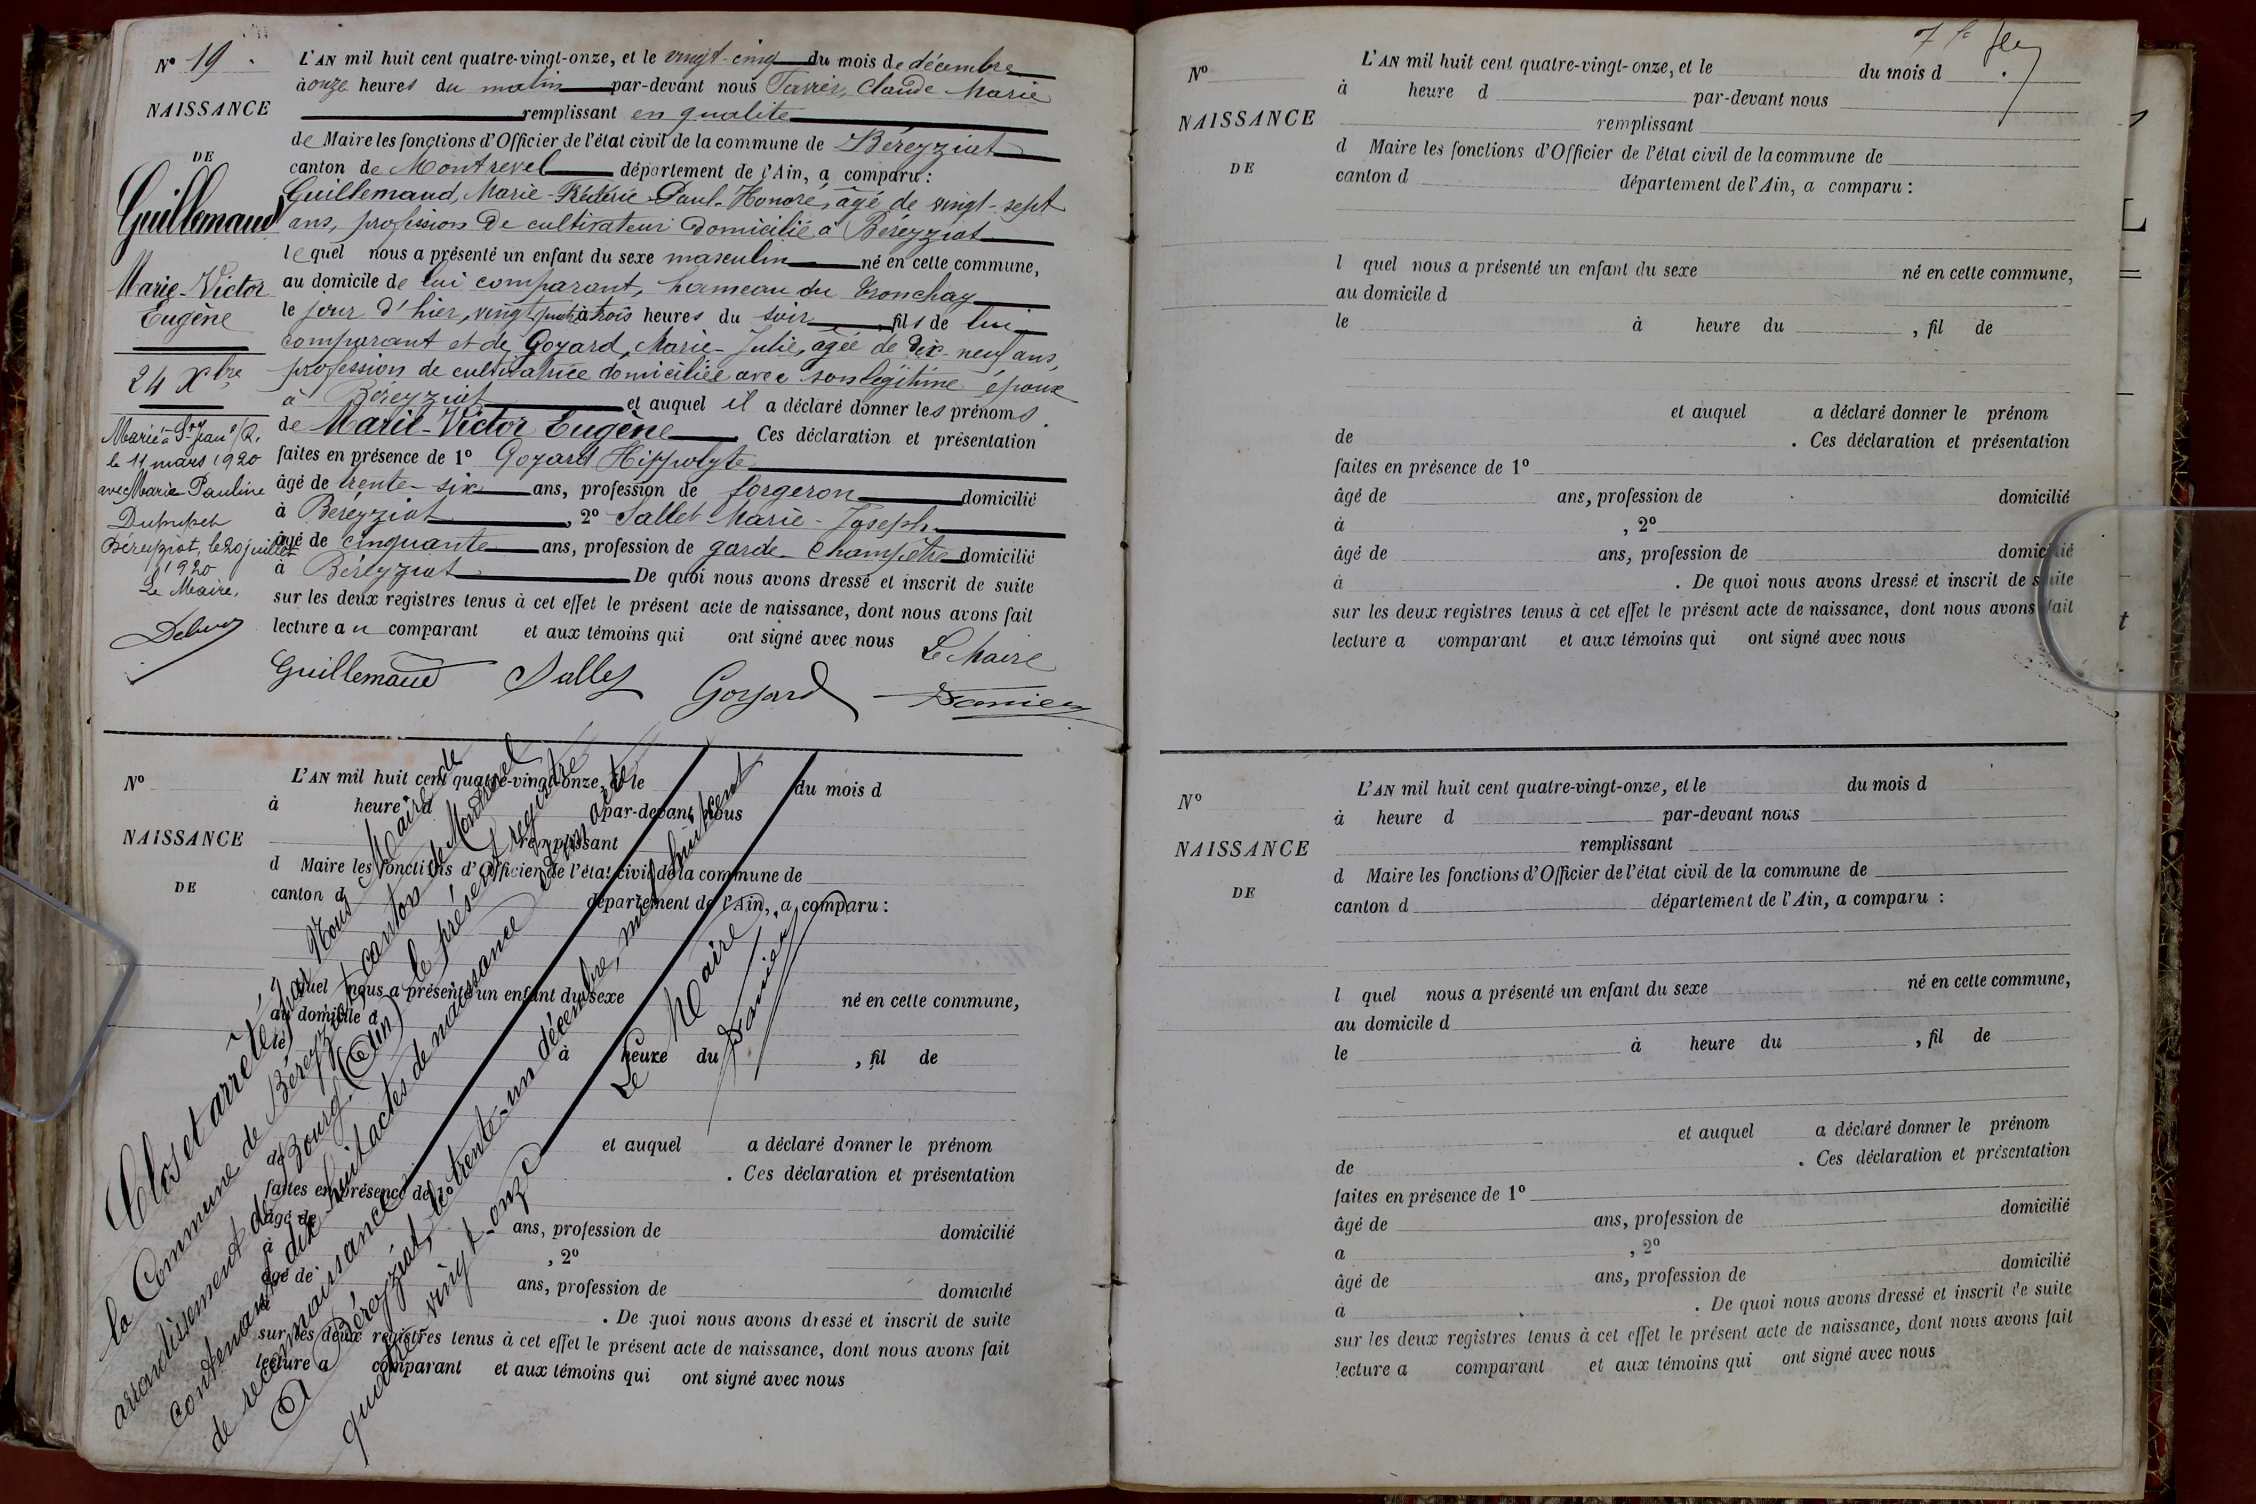 N° 19.
NAISSANCE
DE
Guillemaud
Marie-Victor
Eugène
24 Xbre
Marié à St Jean s/R.
le 11 mars 1920
avec Marie Pauline
Béreyziat, le 20 juillet
1920
Le Maire,
L'AN mil huit cent quatre-vingt-onze, et le vingt-cinq du mois de décembre
à onze heures du matin par-devant nous Claude Marie
remplissant en qualité
de Maire les fonctions d'Officier de l'état civil de la commune de Béreyziat
canton de Montrevel département de l'Ain, a comparu :
Guillemaud, Marie-Frédéric-Paul-Honoré, âgé de vingt-sept
ans, profession de cultivateur domicilié à Béreyziat
lequel nous a présenté un enfant du sexe masculin né en cette commune,
au domicile de lui comparant, hameau du Tronchay
le jour d'hier, vingt quatre à trois heures du soir, fils de lui
comparant et de Goyard, Marie-Julie, âgée de dix-neuf ans,
profession de cultivatrice domiciliée avec son légitime époux
à Béreyziat et auquel il a déclaré donner les prénoms
de Marie-Victor Eugène. Ces déclaration et présentation
faites en présence de 1° Goyard Hippolyte
âgé de trente-six ans, profession de forgeron domicilié
à Béreyziat, 2° Sallet Marie-Joseph
âgé de cinquante ans, profession de garde-champêtre domicilié
à Béreyziat De quoi nous avons dressé et inscrit de suite
sur les deux registres tenus à cet effet le présent acte de naissance, dont nous avons fait
lecture au comparant et aux témoins qui ont signé avec nous
Le Maire
Guillemaud Sallet Goyard
N°
NAISSANCE
DE
L'AN mil huit cent quatre-vingt-onze, et le du mois d
à heure d par-devant nous
remplissant
d Maire les fonctions d'Officier de l'état civil de la commune de
canton d département de l'Ain, a comparu :
l quel nous a présenté un enfant du sexe né en cette commune,
au domicile d
le à heure du , fil de
et auquel a déclaré donner le prénom
de . Ces déclaration et présentation
faites en présence de 1°
âgé de ans, profession de domicilié
à , 2°
âgé de ans, profession de domicilié
à . De quoi nous avons dressé et inscrit de suite
sur les deux registres tenus à cet effet le présent acte de naissance, dont nous avons fait
lecture a comparant et aux témoins qui ont signé avec nous
Clos et arrêté par Nous Maire de
la Commune de Béreyziat canton de Montrevel
arrondissement de Bourg (Ain) le présent registre
contenant dix huit actes de naissance et un acte
de reconnaissance
A Béreyziat, le trente-un décembre, mil huit cent
quatre-vingt-onze
Le Maire
N°
NAISSANCE
DE
L'AN mil huit cent quatre-vingt-onze, et le du mois d
à heure d par-devant nous
remplissant
d Maire les fonctions d'Officier de l'état civil de la commune de
canton d département de l'Ain, a comparu :
l quel nous a présenté un enfant du sexe né en cette commune,
au domicile d
le à heure du , fil de
et auquel a déclaré donner le prénom
de . Ces déclaration et présentation
faites en présence de 1°
âgé de ans, profession de domicilié
à , 2°
âgé de ans, profession de domicilié
à . De quoi nous avons dressé et inscrit de suite
sur les deux registres tenus à cet effet le présent acte de naissance, dont nous avons fait
lecture a comparant et aux témoins qui ont signé avec nous
N°
NAISSANCE
DE
L'AN mil huit cent quatre-vingt-onze, et le du mois d
à heure d par-devant nous
remplissant
d Maire les fonctions d'Officier de l'état civil de la commune de
canton d département de l'Ain, a comparu :
l quel nous a présenté un enfant du sexe né en cette commune,
au domicile d
le à heure du , fil de
et auquel a déclaré donner le prénom
de . Ces déclaration et présentation
faites en présence de 1°
âgé de ans, profession de domicilié
a , 2°
âgé de ans, profession de domicilié
à . De quoi nous avons dressé et inscrit de suite
sur les deux registres tenus à cet effet le présent acte de naissance, dont nous avons fait
lecture a comparant et aux témoins qui ont signé avec nous